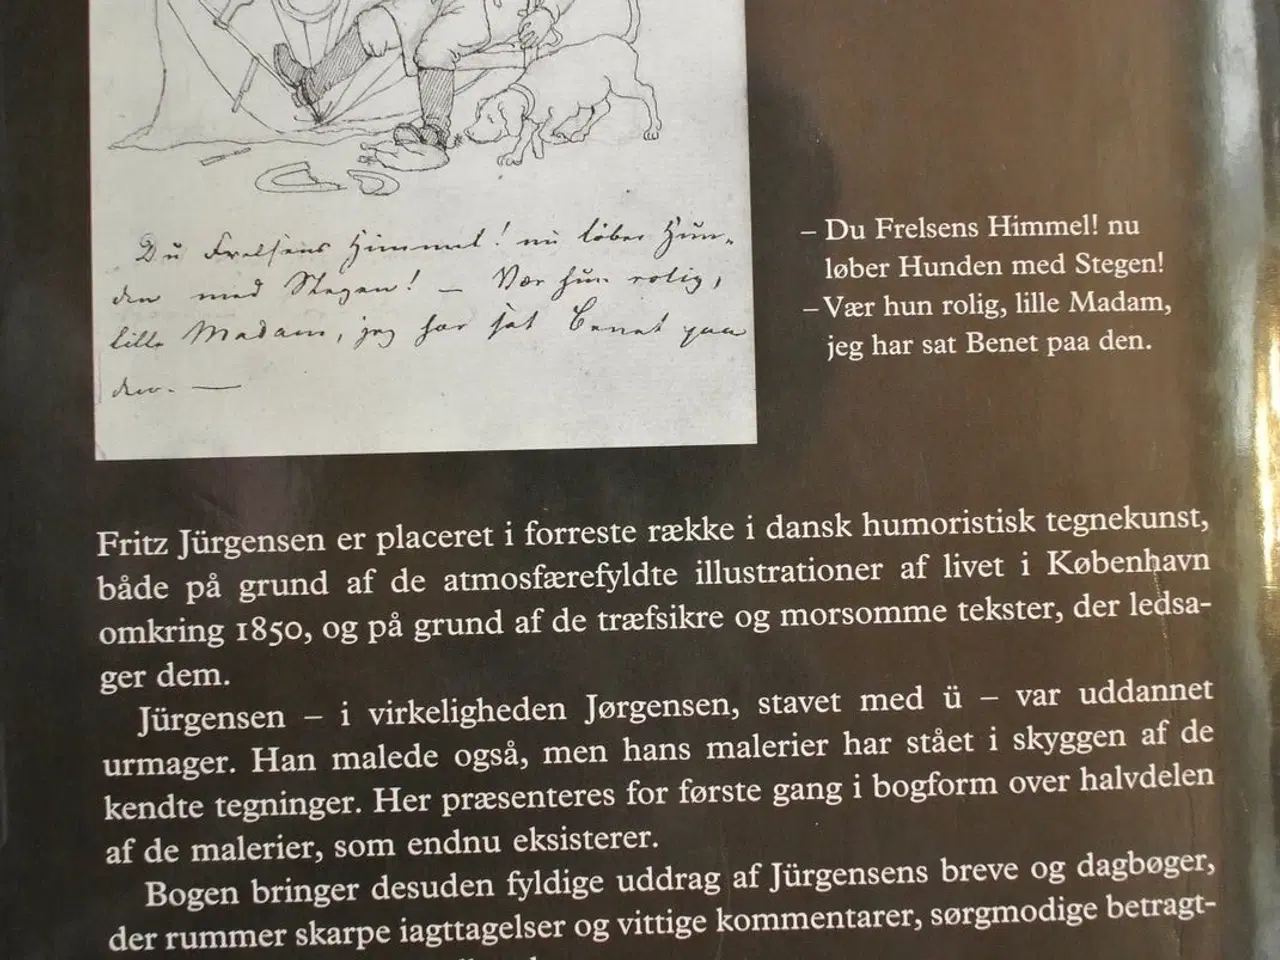 Du Frelsens Himmel! nu løber Hun-
den med Stegen! — Vær hun rolig,
lille Madam, jeg har sat Benet paa
den. —
– Du Frelsens Himmel! nu
løber Hunden med Stegen!
– Vær hun rolig, lille Madam,
jeg har sat Benet paa den.
Fritz Jürgensen er placeret i forreste række i dansk humoristisk tegnekunst,
både på grund af de atmosfærefyldte illustrationer af livet i København
omkring 1850, og på grund af de træfsikre og morsomme tekster, der ledsa-
ger dem.
Jürgensen – i virkeligheden Jørgensen, stavet med ü – var uddannet
urmager. Han malede også, men hans malerier har stået i skyggen af de
kendte tegninger. Her præsenteres for første gang i bogform over halvdelen
af de malerier, som endnu eksisterer.
Bogen bringer desuden fyldige uddrag af Jürgensens breve og dagbøger,
der rummer skarpe iagttagelser og vittige kommentarer, sørgmodige betragt-